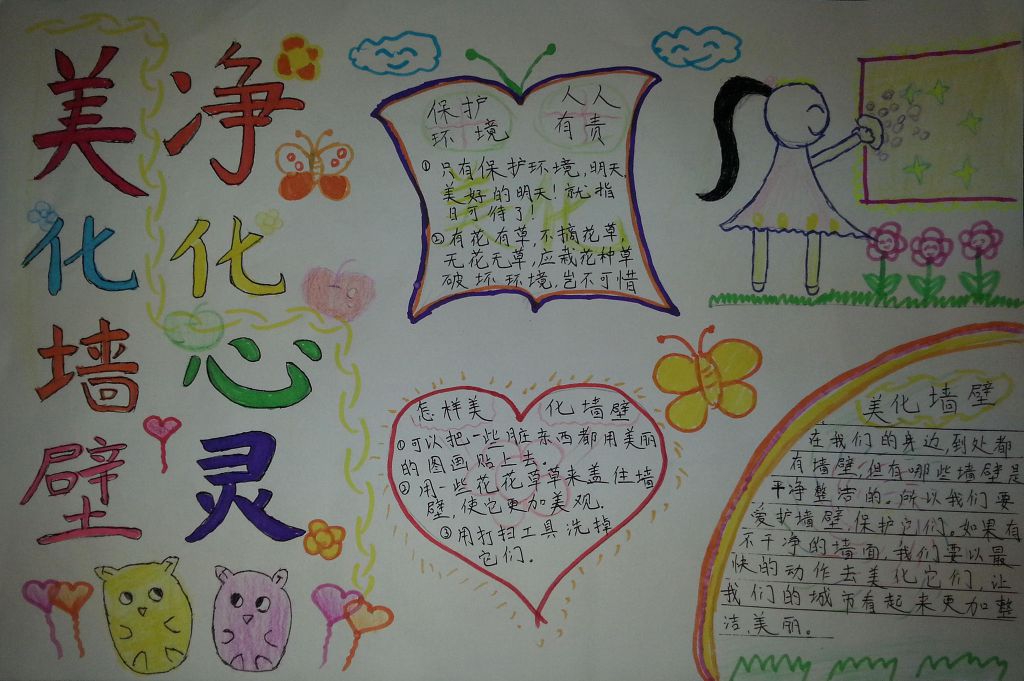 美化墙壁
净化心灵
保护环境
人人有责
①只有保护环境,明天,
美好的明天!就指
日可待了!
②有花有草,不摘花草,
无花无草,应栽花种草
破坏环境,岂不可惜
怎样美化墙壁
①可以把一些脏东西都用美丽
的图画贴上去.
②用一些花花草草来盖住墙
壁,使它更加美观.
③用打扫工具洗掉
它们.
美化墙壁
在我们的身边,到处都
有墙壁,但有哪些墙壁是
平净整洁的.所以我们要
爱护墙壁,保护它们。如果有
不干净的墙面,我们要以最
快的动作去美化它们,让
我们的城市看起来更加整
洁,美丽。